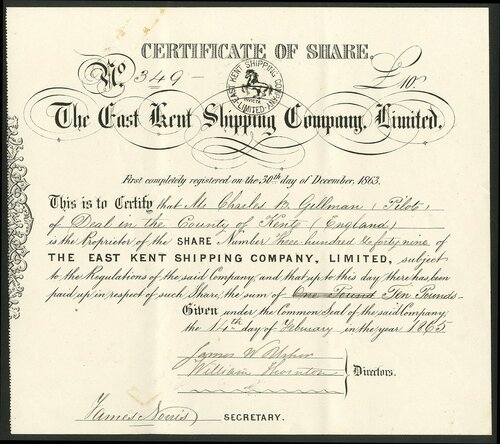 CERTIFICATE OF SHARE.
No. 349 -
£10.
EAST KENT SHIPPING COMPANY LIMITED
INVICTA
The East Kent Shipping Company, Limited,
First completely registered on the 30th day of December, 1863.
This is to Certify that Mr. Charles B. Gillman (Pilot)
of Deal in the County of Kent (England)
is the Proprietor of the SHARE Number three hundred & forty nine of
THE EAST KENT SHIPPING COMPANY, LIMITED, subject
to the Regulations of the said Company, and that up to this day there has been
paid up in respect of such Share, the sum of One Pound Ten Pounds -
Given under the Common Seal of the said Company,
the 14th day of February in the year 1865
James W.
William Thornton
Directors.
James Norris SECRETARY.